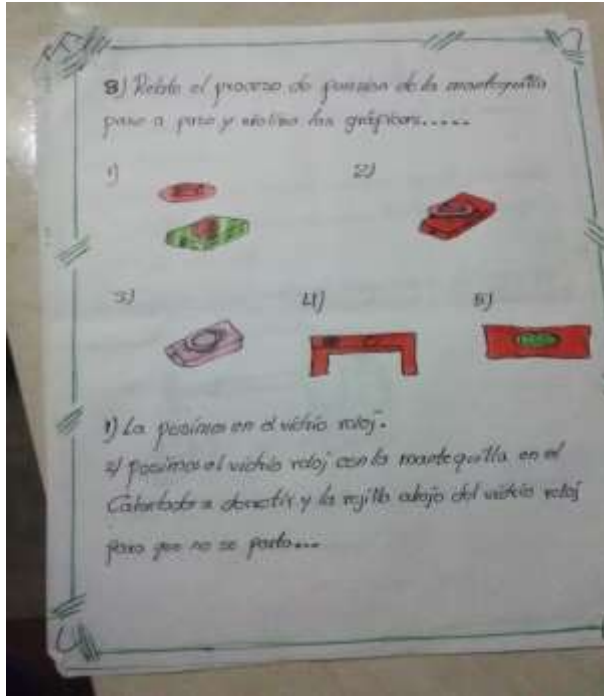 8) Relate el proceso de fusion de la mantequilla
paso a paso y realice los gráficos.....
1)
2)
3)
4)
5)
1) La pusimos en el vidrio reloj.
2) pusimos el vidrio reloj con la mantequilla en el
y la rejilla abajo del vidrio reloj
para que no se parta...